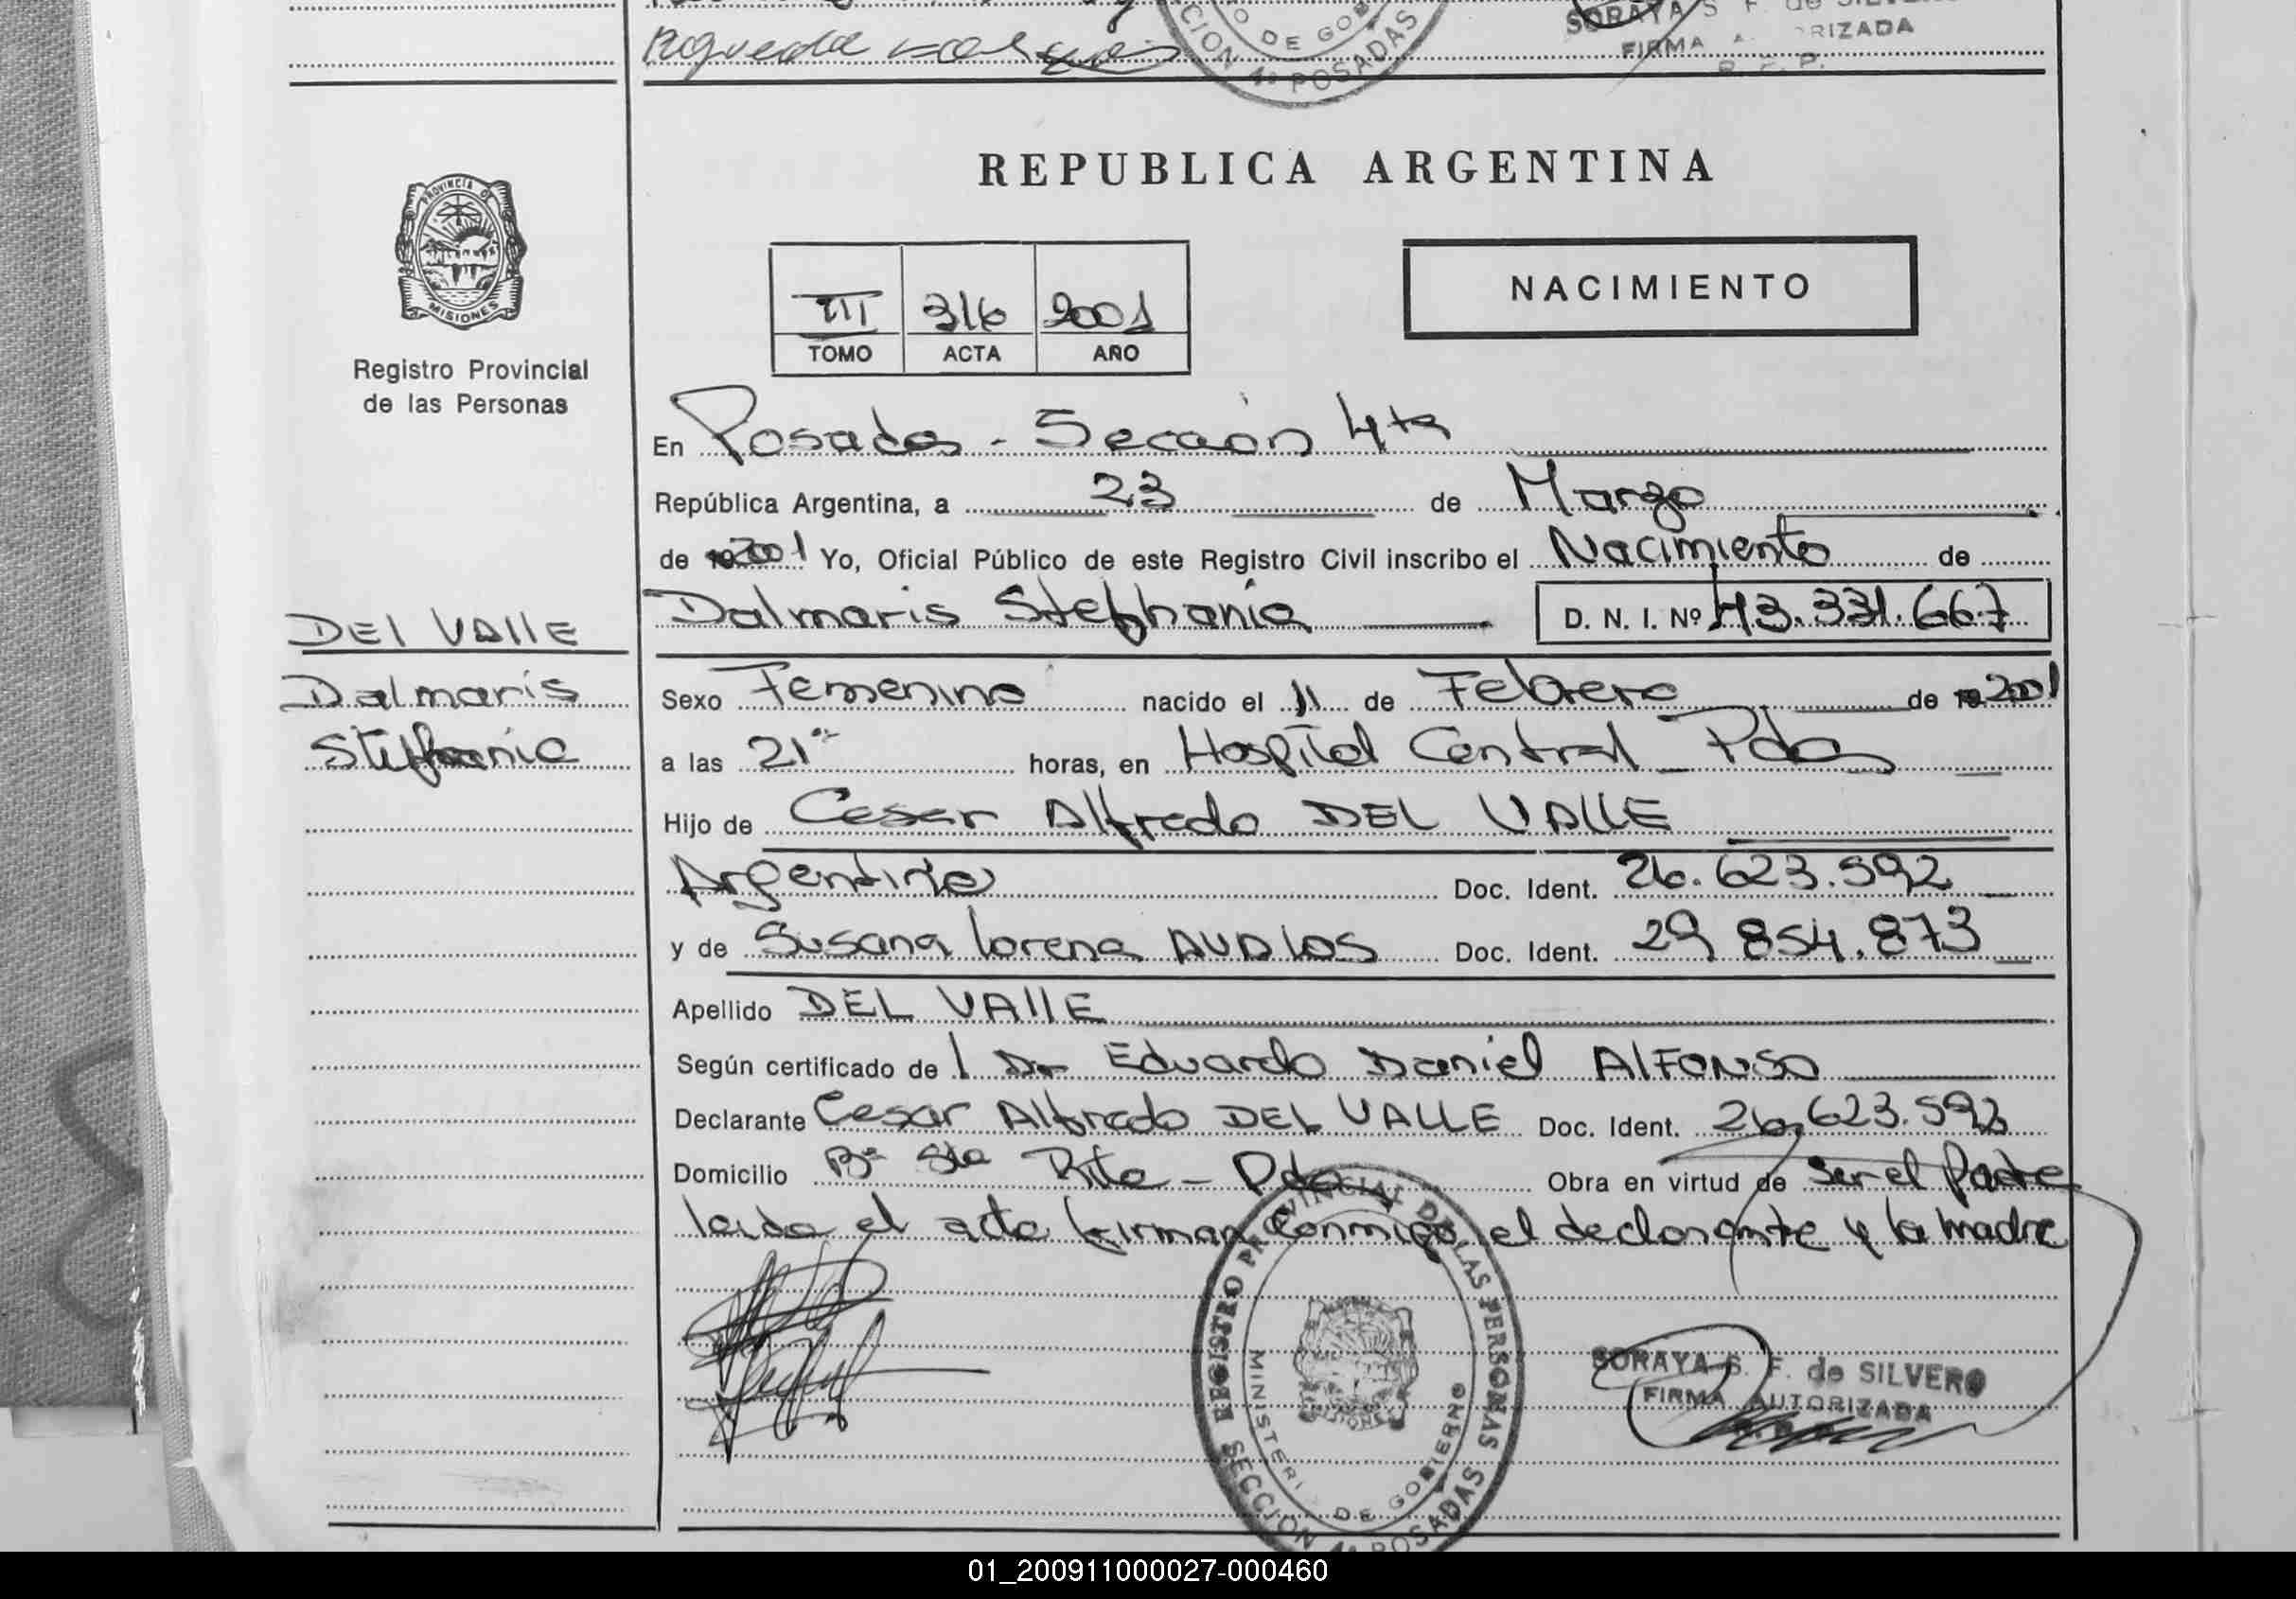 SORAYA S. F. de SILVERO
FIRMA A RIZADA
CION 4ª POSADAS
REPUBLICA ARGENTINA
PROVINCIA DE
MISIONES
Registro Provincial
de las Personas
III 316 2001
TOMO ACTA AÑO
NACIMIENTO
En Posadas - Sección 4ta
República Argentina, a 23 de Marzo
de 2001 Yo, Oficial Público de este Registro Civil inscribo el Nacimiento de
DEL VAllE
Dalmaris Stephania D. N. I. Nº 43.331.667
Dalmaris
Sexo Femenino nacido el 11 de Febrero de 2001
Stephania
a las 21 horas, en Hospital Central - Pdas
Hijo de Cesar Alfredo DEL VALLE
Argentino Doc. Ident. 26.623.592
y de Susana lorena AVALOS Doc. Ident. 29 854.873
Apellido DEL VAllE
Según certificado de l Dr Eduardo Daniel AlFONSO
Declarante Cesar Alfredo DEL VALLE Doc. Ident. 26.623.592
Domicilio Bº Sta Rita - Pdas Obra en virtud de Ser el Padre
leida el acta firman conmigo el declarante y la madre
REGISTRO PROVINCIAL DE LAS PERSONAS
MINISTERIO DE GOBIERNO
SECCION 4ª POSADAS
MISIONES
SORAYA S. F. de SILVERO
FIRMA AUTORIZADA
01_200911000027-000460